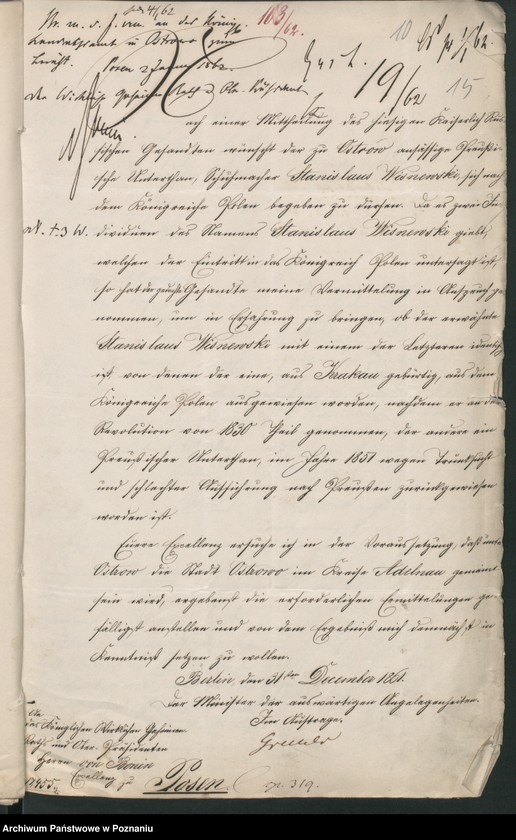 an der Königl.
Landratsamt in Ostrowo zum
Bericht.
Posen 2 Januar 1862.
Der Wirkliche Geheime Rath u. Ober Präsident
108/62.
10
19/62
15
Nach einer Mittheilung des hiesigen Kaiserlich Rus-
sischen Gesandten wünscht der zu Ostrow ansässige Preußi-
sche Unterthan, Schuhmacher Stanislaus Wisnewski, sich nach
dem Königreiche Polen begeben zu dürfen. Da es zwei In-
dividuen des Namens Stanislaus Wisnewski giebt,
welchen der Eintritt in das Königreich Polen untersagt ist,
so hat der genannte Gesandte meine Vermittelung in Anspruch ge-
nommen, um in Erfahrung zu bringen, ob der erwähnte
Stanislaus Wisnewski mit einem der Letzteren identisch
ist, von denen der eine, aus Krakau gebürtig, aus dem
Königreiche Polen ausgewiesen worden, nachdem er an der
Revolution von 1830 Theil genommen, der andere ein
Preußischer Unterthan, im Jahre 1851 wegen Trunksucht
und schlechter Aufführung nach Preußen zurückgewiesen
worden ist.
Euere Excellenz ersuche ich in der Voraussetzung, daß unter
Ostrow die Stadt Ostrowo im Kreise Adelnau gemeint
sein wird, ergebenst die erforderlichen Ermittelungen ge-
fälligst anstellen und von dem Ergebniß mich demnächst in
Kenntniß setzen zu wollen.
Berlin, den 31ten December 1861.
Der Minister der auswärtigen Angelegenheiten.
Im Auftrage.
An
des Königlichen Wirklichen Geheimen
Raths und Ober-Präsidenten
Herrn von Bonin
Excellenz
zu Posen.
Archiwum Państwowe w Poznaniu